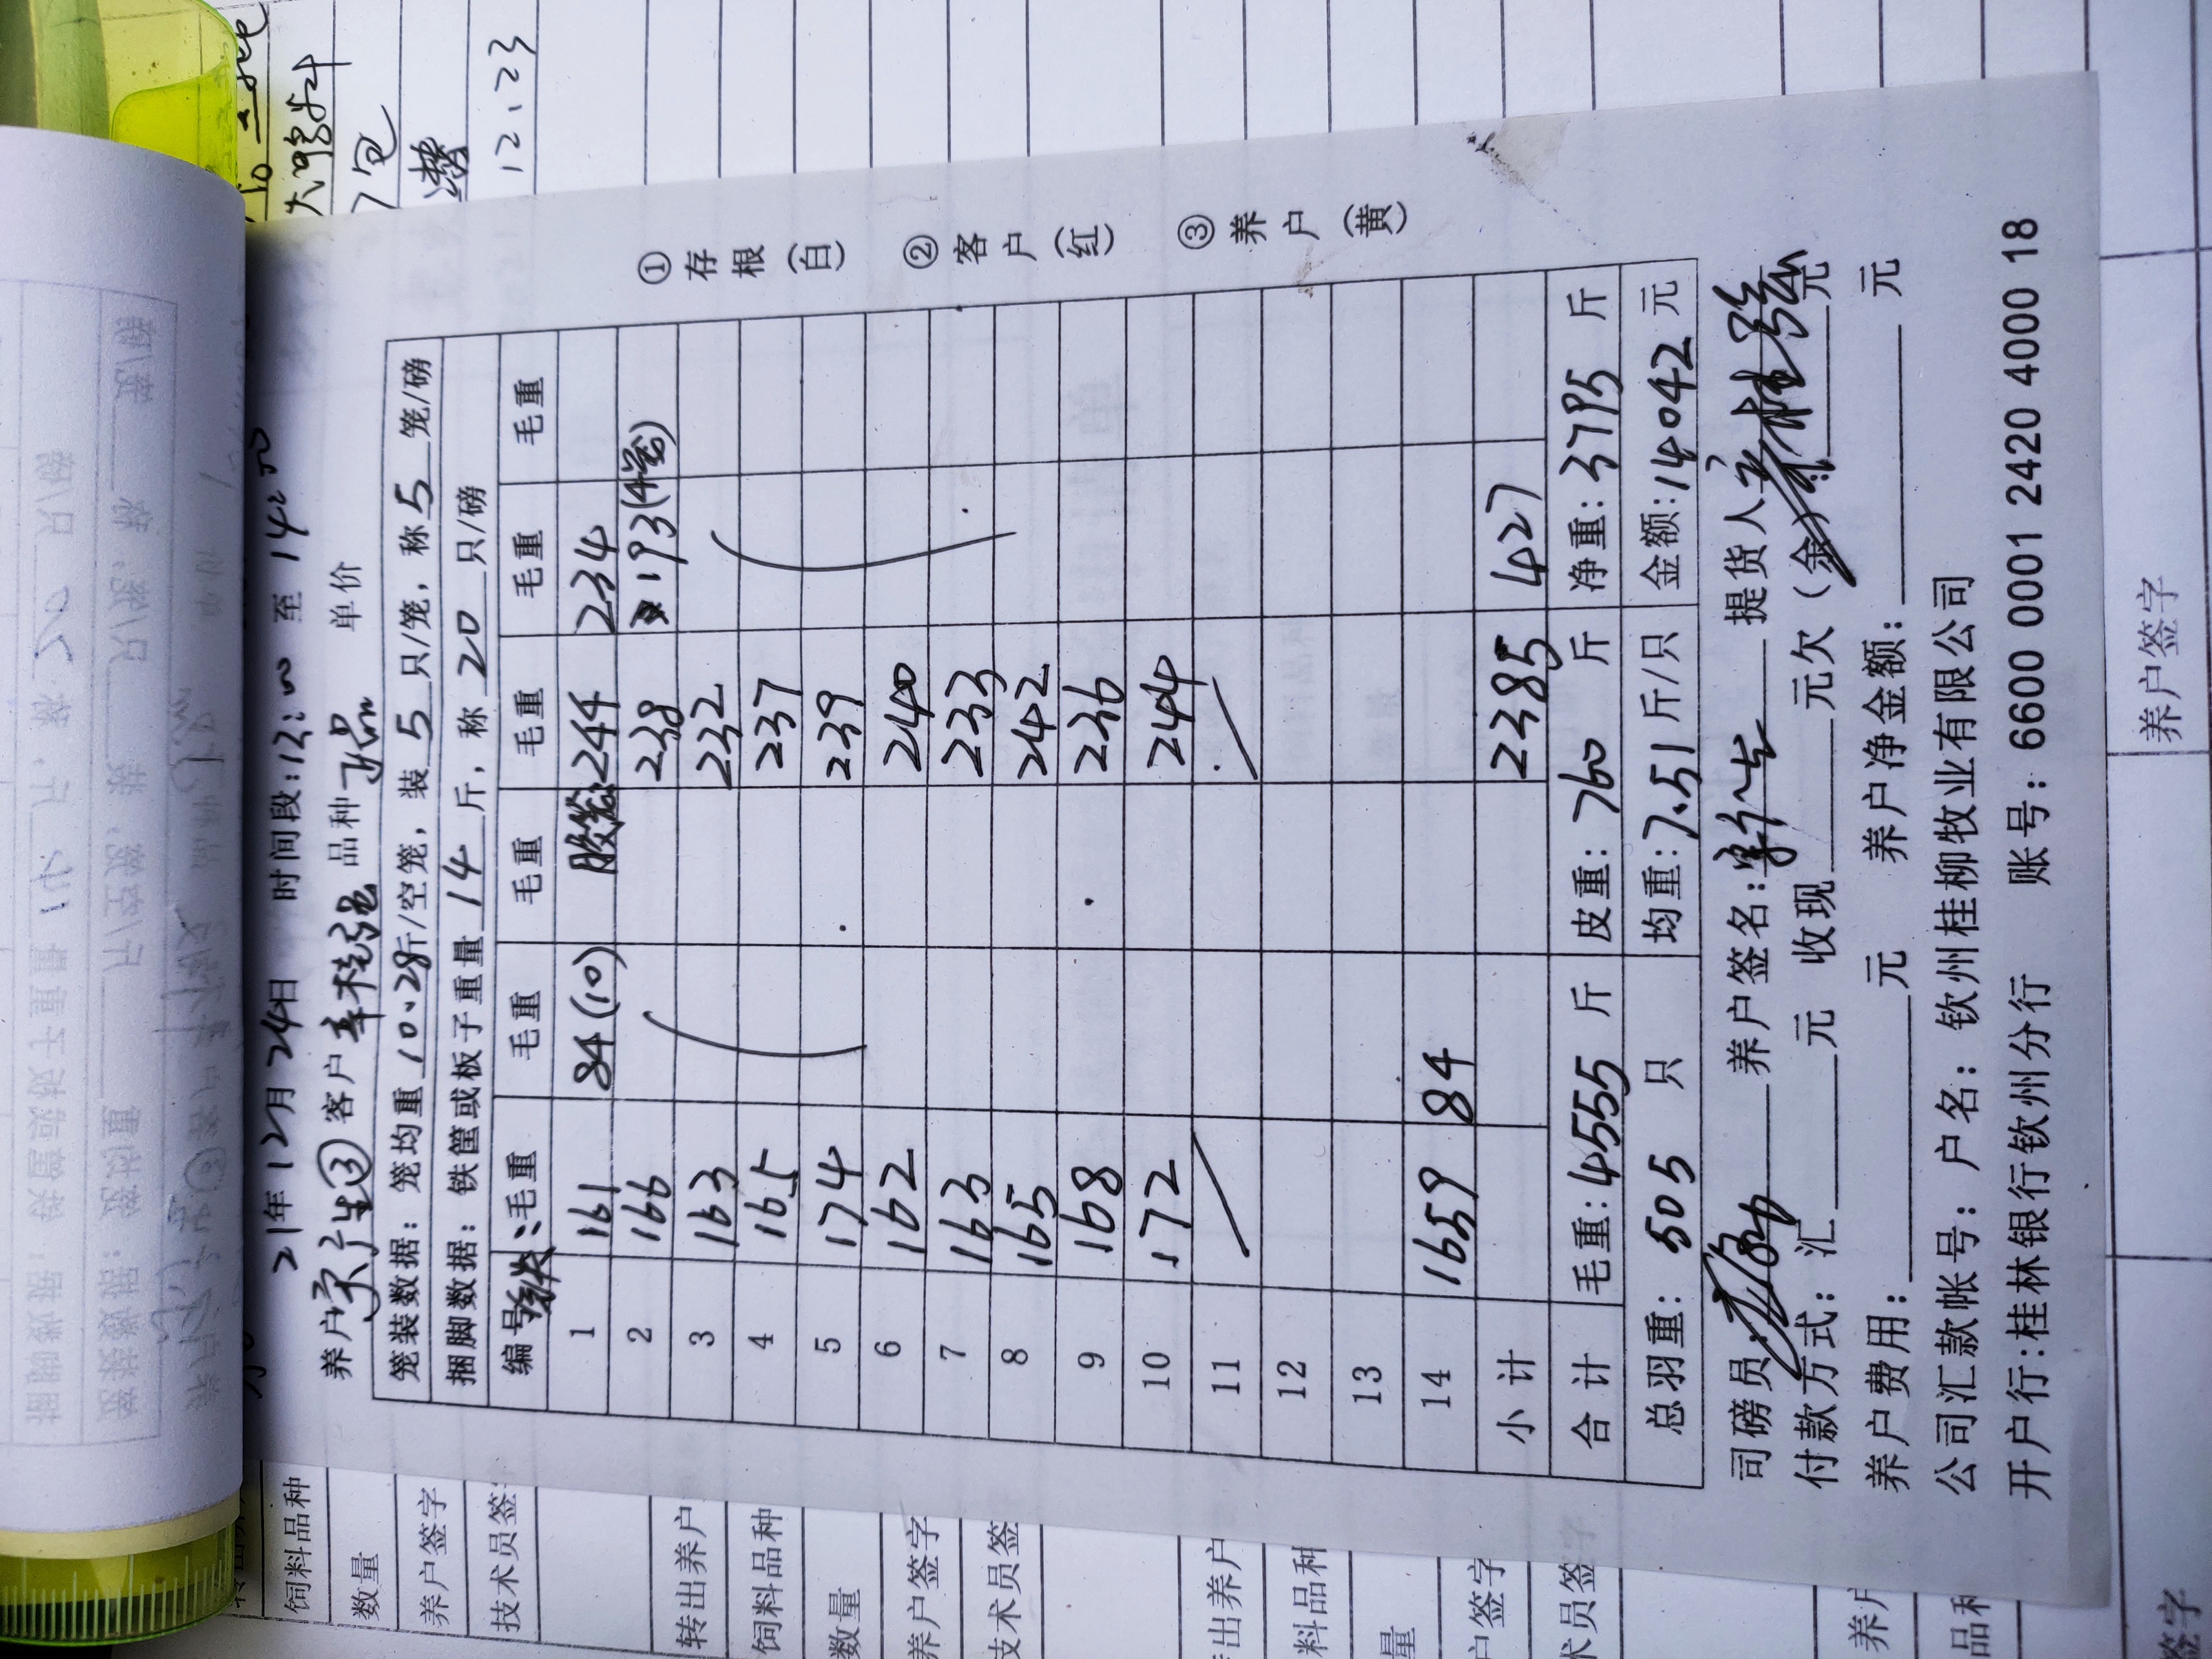 21年12月24日 时间段:12:00 至 14:20
养户宁产生③ 客户 辛桂强 品种 正品 单价
笼装数据: 笼均重 10.28斤/空笼, 装 5 只/笼, 称 5 笼/磅
捆脚数据: 铁筐或板子重量 14 斤, 称 20 只/磅
编号 毛重 毛重 毛重 毛重 毛重 毛重
1 161 84(10) 胶笼: 244 234
2 166 238 193(4笼)
3 163 232
4 165 237
5 174 239
6 162 240
7 163 233
8 165 242
9 168 236
10 172 244
11
12
13
14 1659 84
小计 2385 427
合计 毛重:4555 斤 皮重:760 斤 净重:3795 斤
总羽重: 505 只 均重:7.51斤/只 金额:14042元
司磅员 养户签名: 提货人
付款方式: 汇 元 收现 元欠(金) 元
养户费用: 元 养户净金额: 元
公司汇款帐号: 户名: 钦州桂柳牧业有限公司
开户行:桂林银行钦州分行 账号: 6600 0001 2420 4000 18
①存根(白)
②客户(红)
③养户(黄)
大鸭料
7包
12.23
饲料品种
数量
养户签字
技术员签
转出养户
饲料品种
数量
养户签字
技术员签
出养户
料品种
量
户签字
术员签
养户
品种
签字
养户签字